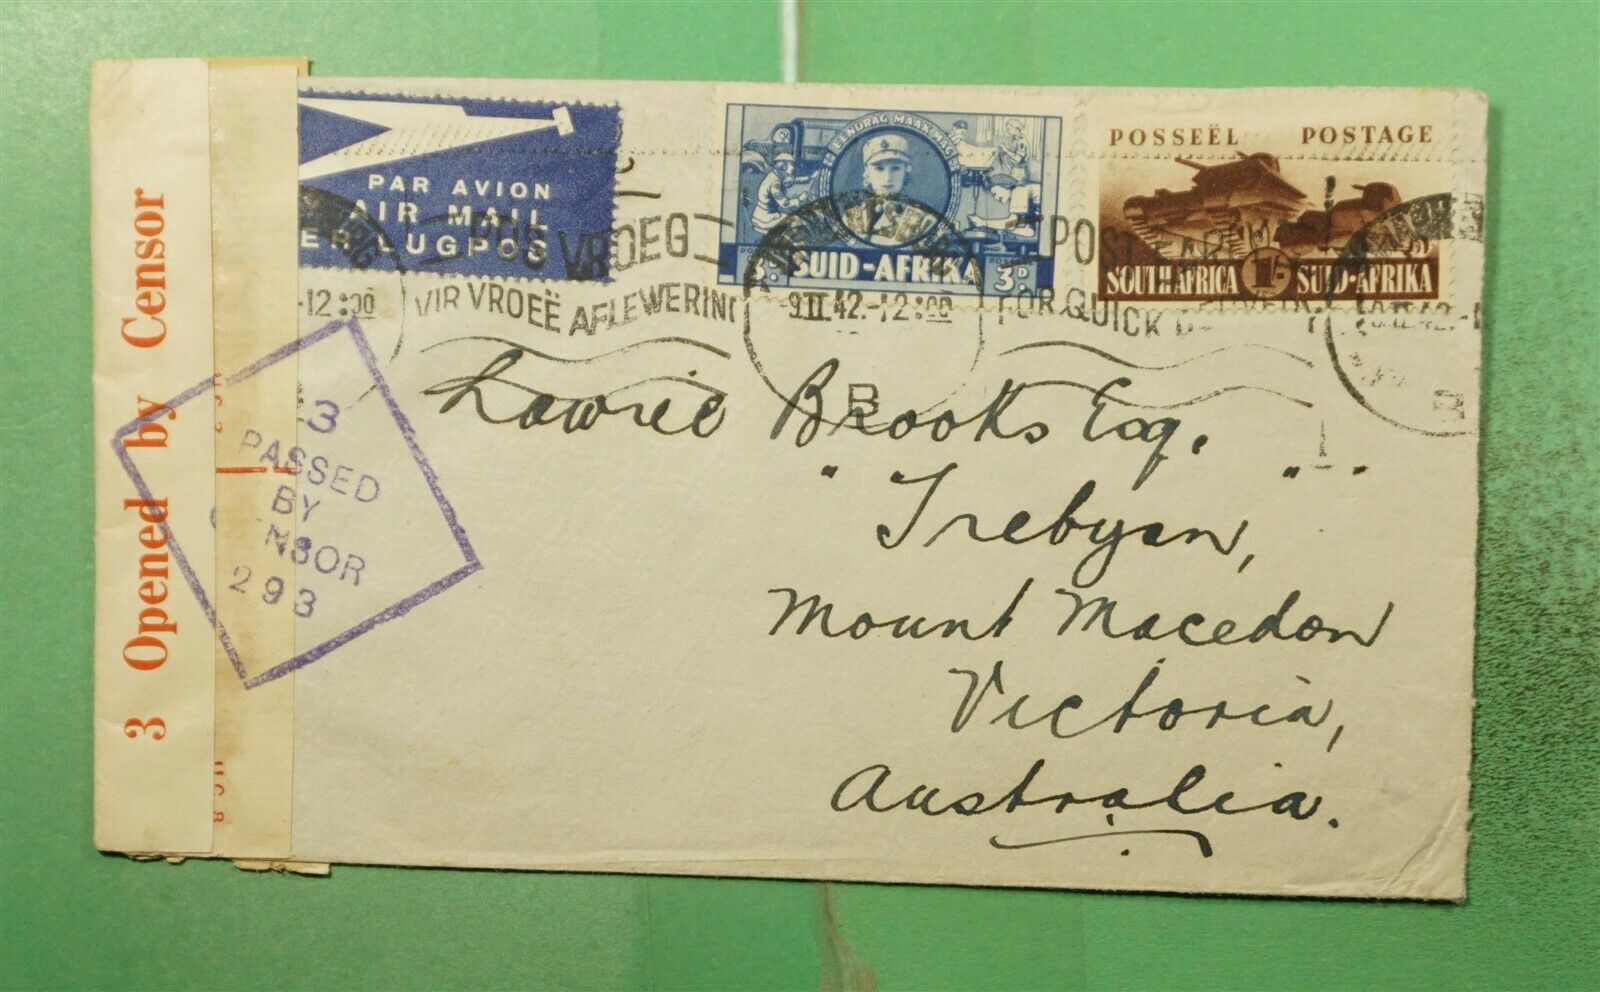 3 Opened by Censor
3
PASSED
BY
NSOR
293
PAR AVION
AIR MAIL
ER LUGPOS
EENDRAG MAAK MAG
3D. SUID-AFRIKA 3D.
POSSEËL POSTAGE
SOUTH AFRICA 1/- SUID-AFRIKA
POS VROEG
VIR VROEË AFLEWERING
-12:00
-9.II.42.-12:00
B
POST EARLY
FOR QUICK
Lawrie Brooks Esq.
"Trebyan,"
Mount Macedon
Victoria,
Australia.